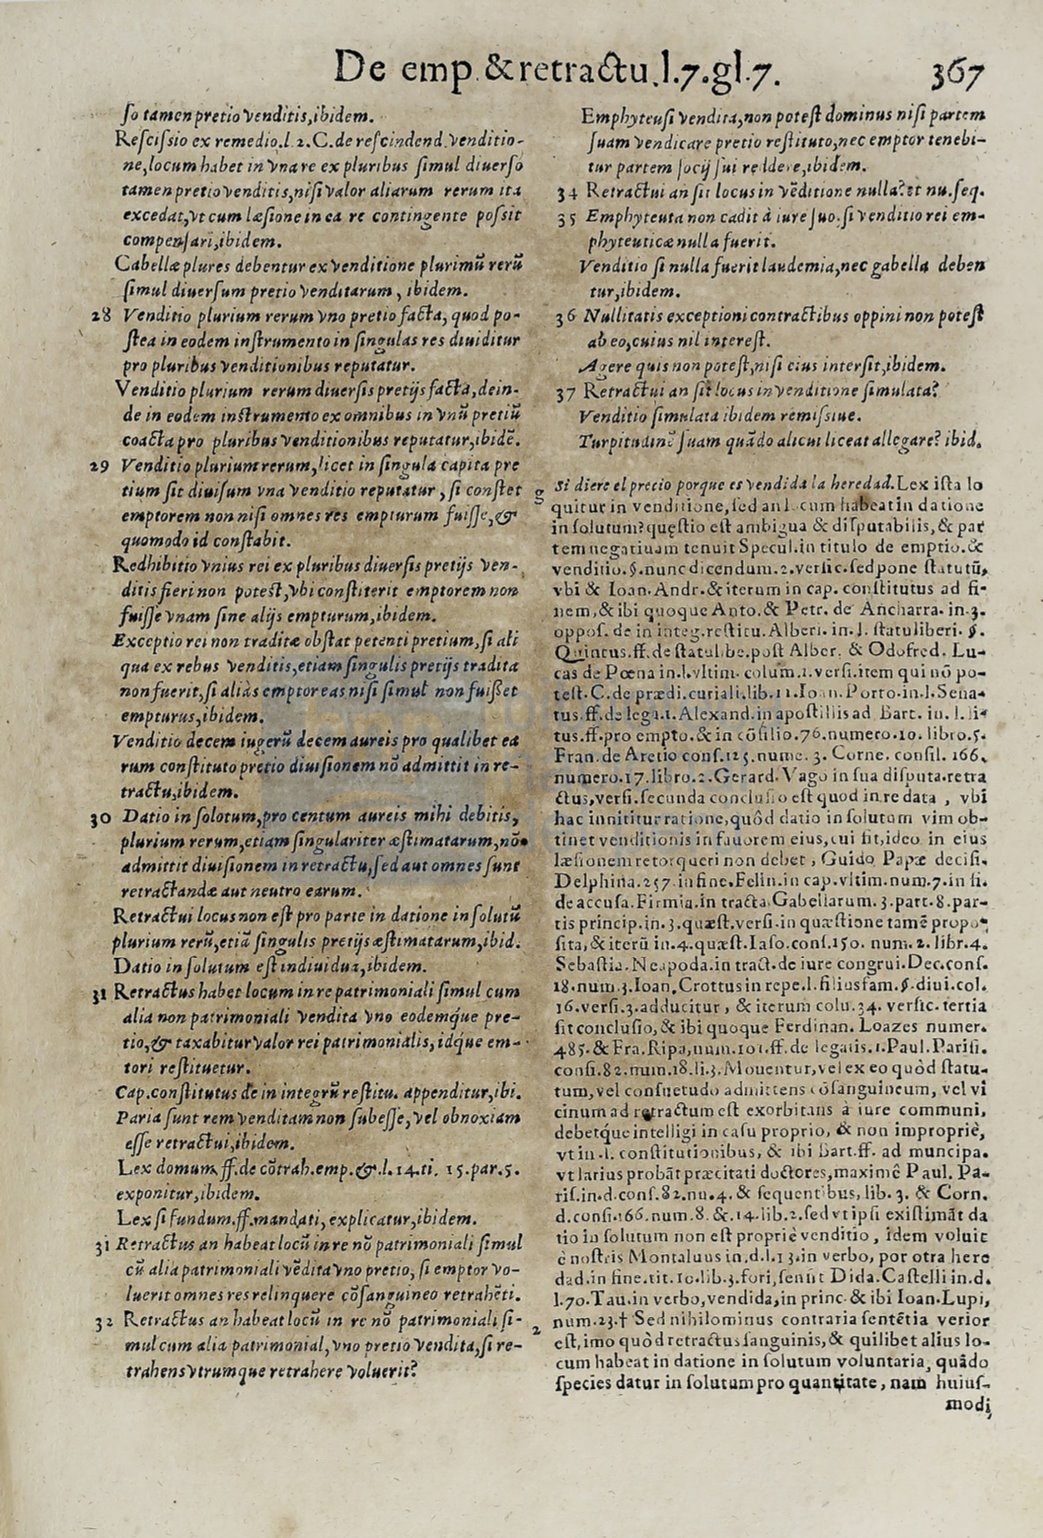 De emp. & retractu.l.7.gl.7. 367
ſo tamen pretio venditis,ibidem.
Reſciſsio ex remedio.l.2.C.de reſcindend.venditio-
ne,locum habet in vna re ex pluribus ſimul diuerſo
tamen pretio venditis,niſi valor aliarum rerum ita
excedat,vt cum læſione in ea re contingente poſsit
compenſari,ibidem.
Cabellæ plures debentur ex venditione plurimũ rerũ
ſimul diuerſum pretio venditarum, ibidem.
28 Venditio plurium rerum vno pretio facta, quod po-
ſtea in eodem inſtrumento in ſingulas res diuiditur
pro pluribus venditionibus reputatur.
Venditio plurium rerum diuerſis pretijs facta,dein-
de in eodem inſtrumento ex omnibus in vnũ pretiũ
coacta pro pluribus venditionibus reputatur,ibidẽ.
29 Venditio plurium rerum,licet in ſingula capita pre
tium ſit diuiſum vna venditio reputatur, ſi conſtet
emptorem non niſi omnes res empturum fuiſſe,&
quomodo id conſtabit.
Redhibitio vnius rei ex pluribus diuerſis pretijs ven-
ditis fieri non poteſt,vbi conſtiterit emptorem non
fuiſſe vnam ſine alijs empturum,ibidem.
Exceptio rei non traditæ obſtat petenti pretium,ſi ali
qua ex rebus venditis,etiam ſingulis pretijs tradita
non fuerit,ſi aliàs emptor eas niſi ſimul non fuiſſet
empturus,ibidem.
Venditio decem iugerũ decem aureis pro qualibet ea
rum conſtituto pretio diuiſionem nõ admittit in re-
tractu,ibidem.
30 Datio in ſolotum,pro centum aureis mihi debitis,
plurium rerum,etiam ſingulariter æſtimatarum,nõ
admittit diuiſionem in retractu,ſed aut omnes ſunt
retractandæ aut neutro earum.
Retractui locus non eſt pro parte in datione in ſolutũ
plurium rerũ,etiã ſingulis pretijs æſtimatarum,ibid.
Datio in ſolutum eſt indiuidua,ibidem.
31 Retractus habet locum in re patrimoniali ſimul cum
alia non patrimoniali vendita vno eodemque pre-
tio,& taxabitur valor rei patrimonialis,idque em-
tori reſtituetur.
Cap.conſtitutus de in integrũ reſtitu. appenditur,ibi.
Paria ſunt rem venditam non ſubeſſe,vel obnoxiam
eſſe retractui,ibidem.
Lex domum,ff.de cõtrah.emp.&.l.14.ti. 15.par.5.
exponitur,ibidem.
Lex ſi fundum.ff.mandati, explicatur,ibidem.
31 Retractus an habeat locũ in re nõ patrimoniali ſimul
cũ alia patrimoniali vẽdita vno pretio, ſi emptor vo-
luerit omnes res relinquere cõſanguineo retrahẽti.
32 Retractus an habeat locũ in re nõ patrimoniali ſi-
mul cum alia patrimonial,vno pretio vendita,ſi re-
trahens vtrumque retrahere voluerit?
Emphyteuſi vendita,non poteſt dominus niſi partem
ſuam vendicare pretio reſtituto,nec emptor tenebi-
tur partem ſocij ſui reddere,ibidem.
34 Retractui an ſit locus in vẽditione nulla?et nu.ſeq.
35 Emphyteuta non cadit à iure ſuo.ſi venditio rei em-
phyteuticæ nulla fuerit.
Venditio ſi nulla fuerit laudemia,nec gabella deben
tur,ibidem.
36 Nullitatis exceptioni contractibus oppini non poteſt
ab eo,cuius nil intereſt.
Agere quis non poteſt,niſi eius interſit,ibidem.
37 Retractui an ſit locus in venditione ſimulata?
Venditio ſimulata ibidem remiſsiue.
Turpitudinẽ ſuam quãdo alicui liceat allegare? ibid.
g Si diere el precio porque es vendida la heredad.Lex iſta lo
quitur in venditione,ſed an l. cum habeat in datione
in ſolutum?quęſtio eſt ambigua & diſputabilis,& par
tem negatiuam tenuit Specul.in titulo de emptio.&
venditio.§.nunc dicendum.2.verſic.ſed pone ſtatutũ,
vbi & Ioan.Andr.& iterum in cap. conſtitutus ad fi-
nem,& ibi quoque Anto.& Petr. de Ancharra. in.3.
oppoſ. de in integ.reſtitu. Alberi. in.l. ſtatuliberi. §.
Quintus.ff.de ſtatul.be.poſt Alber. & Odofred. Lu-
cas de Pœna in.l.vltim. colum.1.verſi.item qui nõ po-
teſt.C.de prædi.curiali.lib.11.Ioan.Porto.in.l.Sena-
tus.ff.de lega.1.Alexand.in apoſtillis ad Bart. in. l.ſi
tus.ff.pro empto.& in cõſilio.76.numero.10. libro.5.
Fran.de Aretio conſ.125.nume. 3. Corne. conſil. 166.
numero.17.libro.2.Gerard.Vago in ſua diſputa.retra
ctus,verſi.ſecunda concluſio eſt quod in re data , vbi
hac innititur ratione,quòd datio in ſolutum vim ob-
tinet venditionis in fauorem eius,cui ſit,ideo in eius
læſionem retorqueri non debet , Guido Papæ deciſi.
Delphina.257.in fine.Felin.in cap.vltim.num.7.in fi.
de accuſa.Firmia.in tracta.Gabellarum.3.part.8.par-
tis princip.in.3.quæſt.verſi.in quæſtione tamẽ propo-
ſita,& iterũ in.4.quæſt.Iaſo.conſ.150. num.2. libr.4.
Sebaſtia.Neapoda.in tract.de iure congrui.Dec.conſ.
18.num.3.Ioan.Crottus in repe.l.filiusfam.§.diui.col.
16.verſi.3.adducitur , & iterum colu.34. verſic.tertia
ſit concluſio,& ibi quoque Ferdinan. Loazes numer.
485.& Fra.Ripa,num.101.ff.de legatis.1.Paul.Pariſi.
conſi.82.num.18.li.3.Mouentur,vel ex eo quòd ſtatu-
tum,vel conſuetudo admittens cõſanguineum, vel vi
cinum ad retractum eſt exorbitans à iure communi,
debetque intelligi in caſu proprio, & non impropriè,
vt in.l. conſtitutionibus, & ibi Bart.ff. ad municipa.
vt latius probãt præcitati doctores,maximè Paul. Pa-
riſ.in.d.conſ.82.nu.4.& ſequentibus, lib. 3. & Corn.
d.conſi.166.num.8.&.14.lib.2.ſed vt ipſi exiſtimãt da
tio in ſolutum non eſt propriè venditio , idem voluit
è noſtris Montaluus in.d.l.13.in verbo, por otra here
dad.in fine.tit.10.lib.3.fori,ſenſit Dida.Caſtelli in.d.
l.70.Tau.in verbo,vendida,in princ.& ibi Ioan.Lupi,
2 num.23.† Sed nihilominus contraria ſentẽtia verior
eſt,imo quòd retractus ſanguinis,& quilibet alius lo-
cum habeat in datione in ſolutum voluntaria, quãdo
ſpecies datur in ſolutum pro quantitate, nam huiuſ-
modi